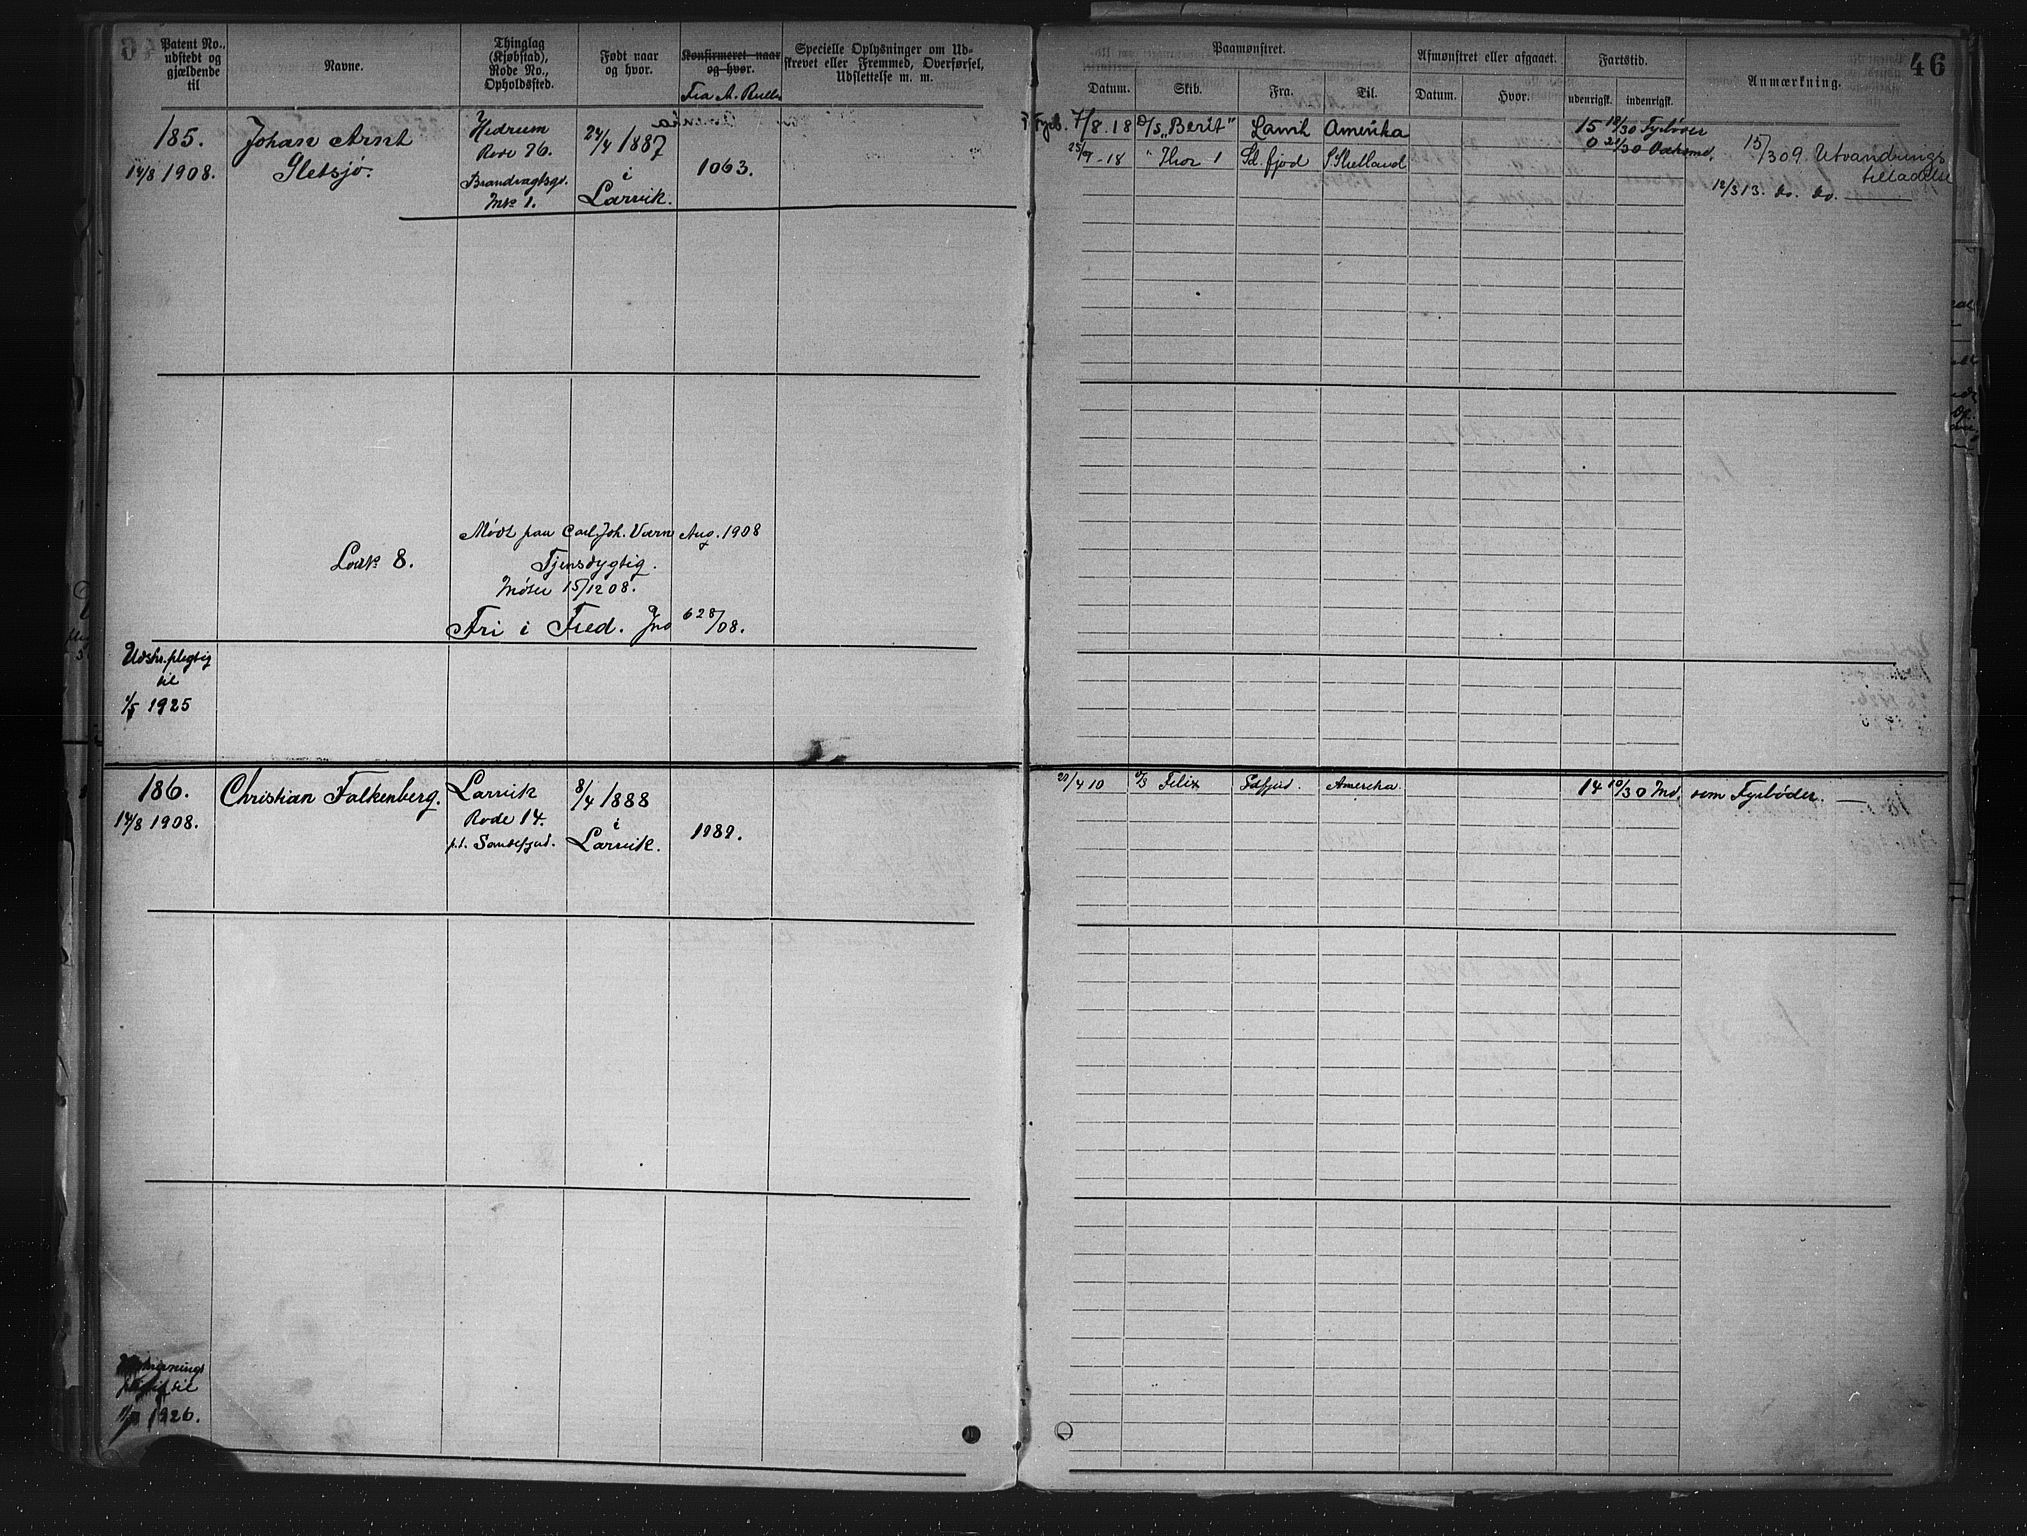 Patent No.,
udstedt og
gjældende
til
Navne.
Thinglag
(Kjøbstad),
Rode No.,
Opholdssted.
Født naar
og hvor.
Konfirmeret naar
og hvor.
Fra A. Rulle
Specielle Oplysninger om Ud-
skrevet eller Fremmed, Overførsel,
Udslettelse m. m.
185.
14/8 1908.
Johan Arnt
Sletsjø.
Hedrum
Rode 76.
Brandvagtsgd.
Mtr 1.
24/4 1887
i
Larvik.
1063.
8.
Mødt paa Carl Joh. Værn Aug. 1908
Tjensdygtig.
Møder 15/12 08.
Fri i Fred. Jno 628/08.
Udskr.pligtig
til
1/5 1925
186.
14/8 1908.
Christian Falkenberg.
Larvik
Rode 14.
p.t. Sandefjord.
8/4 1888
i
Larvik.
1989.
til
1926.
46
Paamønstret.
Afmønstret eller afgaaet.
Fartstid.
Anmærkning.
Datum.
Skib.
Fra.
Til.
Datum.
Hvor.
udenrigsk.
indenrigsk.
Fyrb. 7/8.18 D/S "Berit" Larvik Amerika 15 18/30 Fyrbøder
25/9-18 " Thor 1 Sd.fjord S Shetland 0 21/30
15/3 09. Utvandrings
tilladelse
12/3 13. do. do.
20/4 10 D/S Felix Sdfjord. Amerika. 14 10/30 Md. som Fyrbøder.